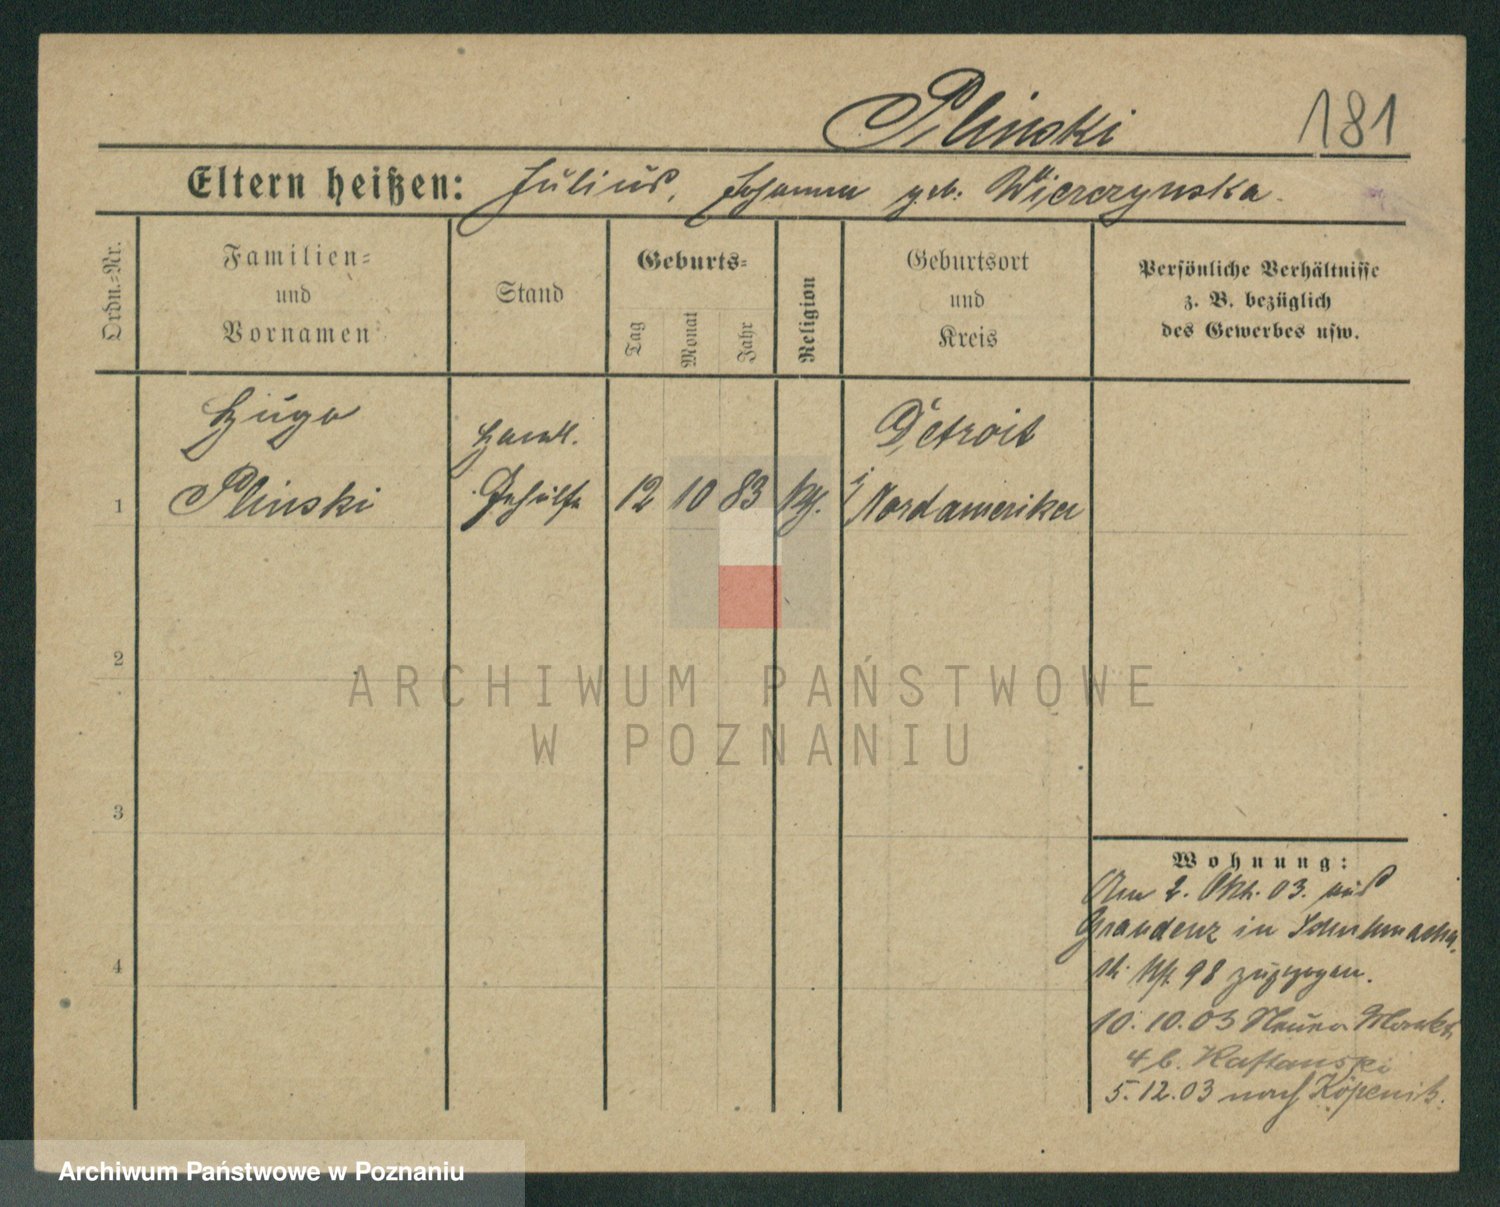 Plinski 181
Eltern heißen: Julius, Johanna geb. Wierczynska.
Ordn.-Nr.
Familien-
und
Vornamen
Stand
Geburts-
Tag
Monat
Jahr
Religion
Geburtsort
und
Kreis
Persönliche Verhältnisse
z. B. bezüglich
des Gewerbes usw.
Hugo
Plinski
Handl.
Gehülfe
1
12 10 83
Detroit
i/
Nordamerika
2
3
4
ARCHIWUM PAŃSTWOWE
W POZNANIU
Wohnung:
Am 2. Okt. 03. aus
Graudenz in Schuhmacher
98 zugezogen.
10. 10. 03 Neuer Markt
4 b. Kaftanski
5. 12. 03 nach Köpenik.
Archiwum Państwowe w Poznaniu